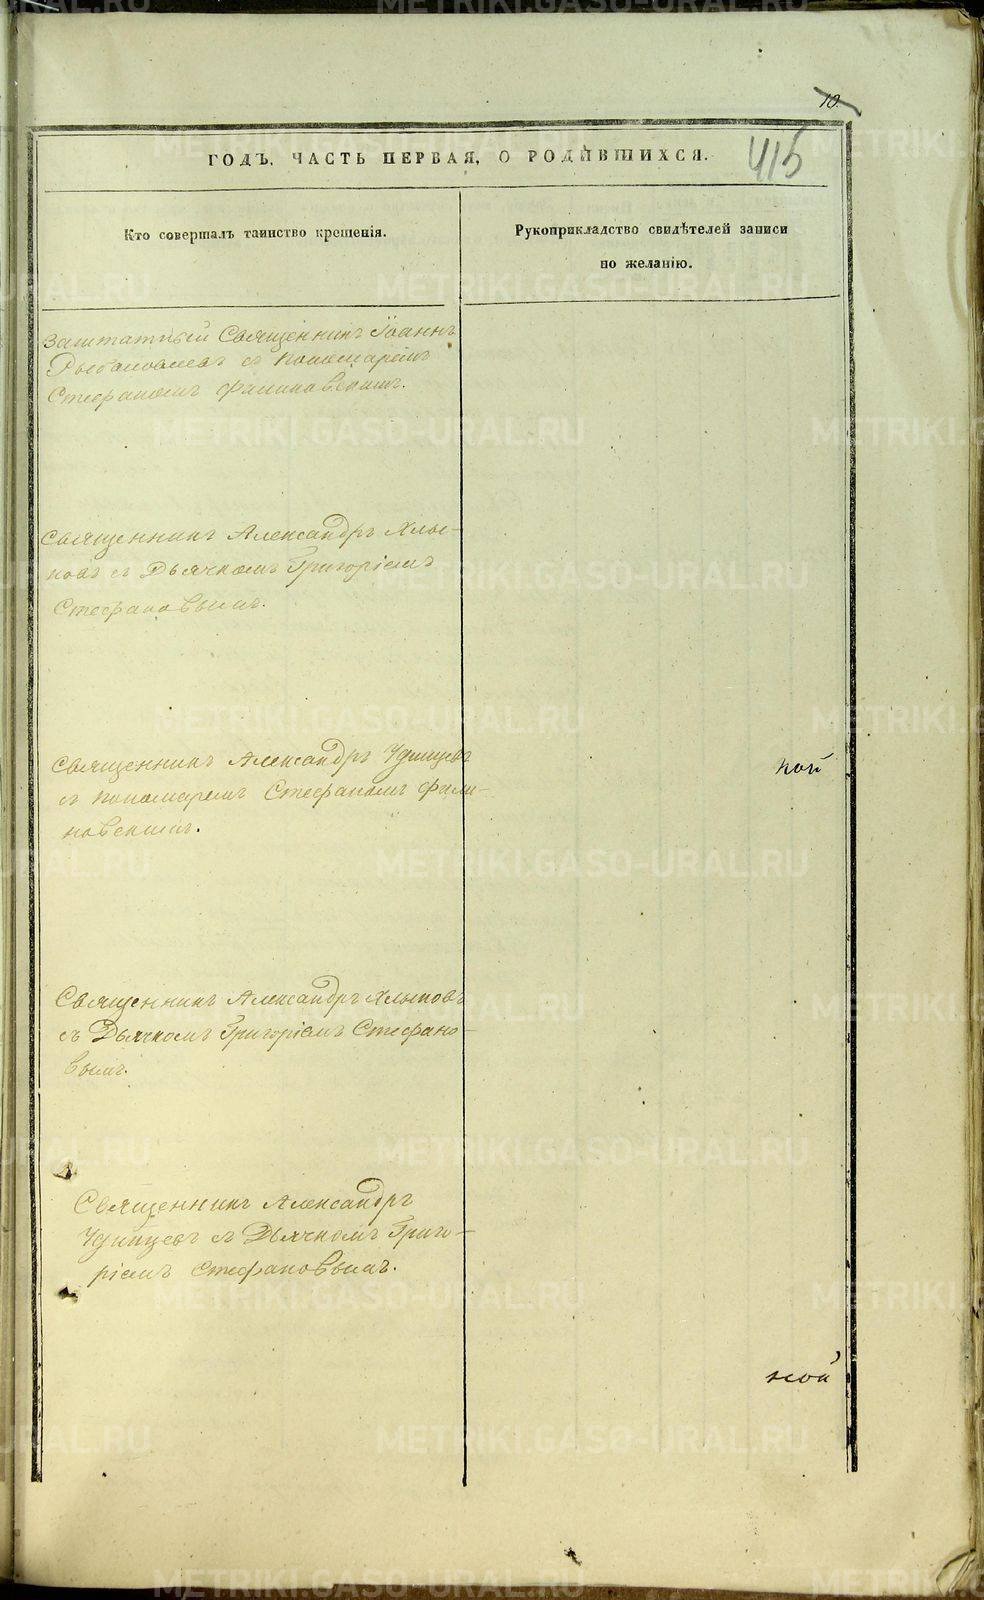 10.
415
ГОДЪ, ЧАСТЬ ПЕРВАЯ, О РОДИВШИХСЯ.
Кто совершалъ таинство крещенія.
Рукоприкладство свидѣтелей записи
по желанію.
Заштатный Священникъ Іоаннъ
съ Пономаремъ
Стефаномъ Филиновскимъ.
Священникъ Александръ Хлы-
новъ съ Дьячкомъ Григоріемъ
Стефановымъ.
Священникъ Александръ Удинцевъ
съ Пономаремъ Стефаномъ Фили-
новскимъ.
кой
Священникъ Александръ Хлыновъ
съ Дьячкомъ Григоріемъ Стефано-
вымъ.
Священникъ Александръ
Удинцевъ съ Дьячкомъ Григо-
ріемъ Стефановымъ.
ной
METRIKI.GASO-URAL.RU